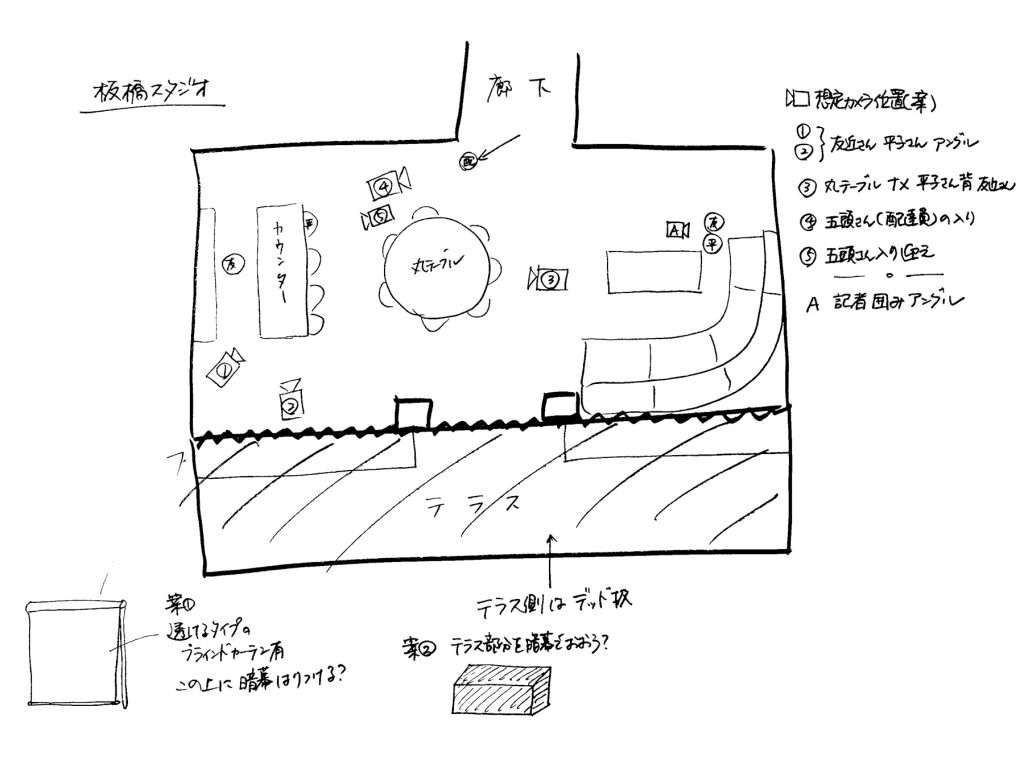 板橋スタジオ
廊下
配
④
⑤
丸テーブル
平
カウンター
友
A
友
平
③
①
②
テラス
テラス側はデッド扱
想定カメラ位置(案)
①
②
友近さん 平子さん アングル
③ 丸テーブル ナメ 平子さん背 友近さん
④ 五頭さん(配達員)の入り
⑤ 五頭さん入り
A 記者囲みアングル
案①
透けるタイプの
ブラインドカーテン有
この上に暗幕はりつける?
案② テラス部分を暗幕でおおう?